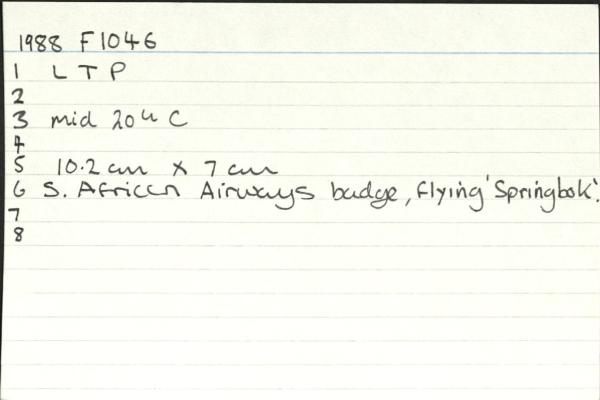 1988 F1046
1 L T P
2
3 mid 20th C
4
5 10.2 cm x 7 cm
6 S. African Airways badge, flying 'Springbok'.
7
8